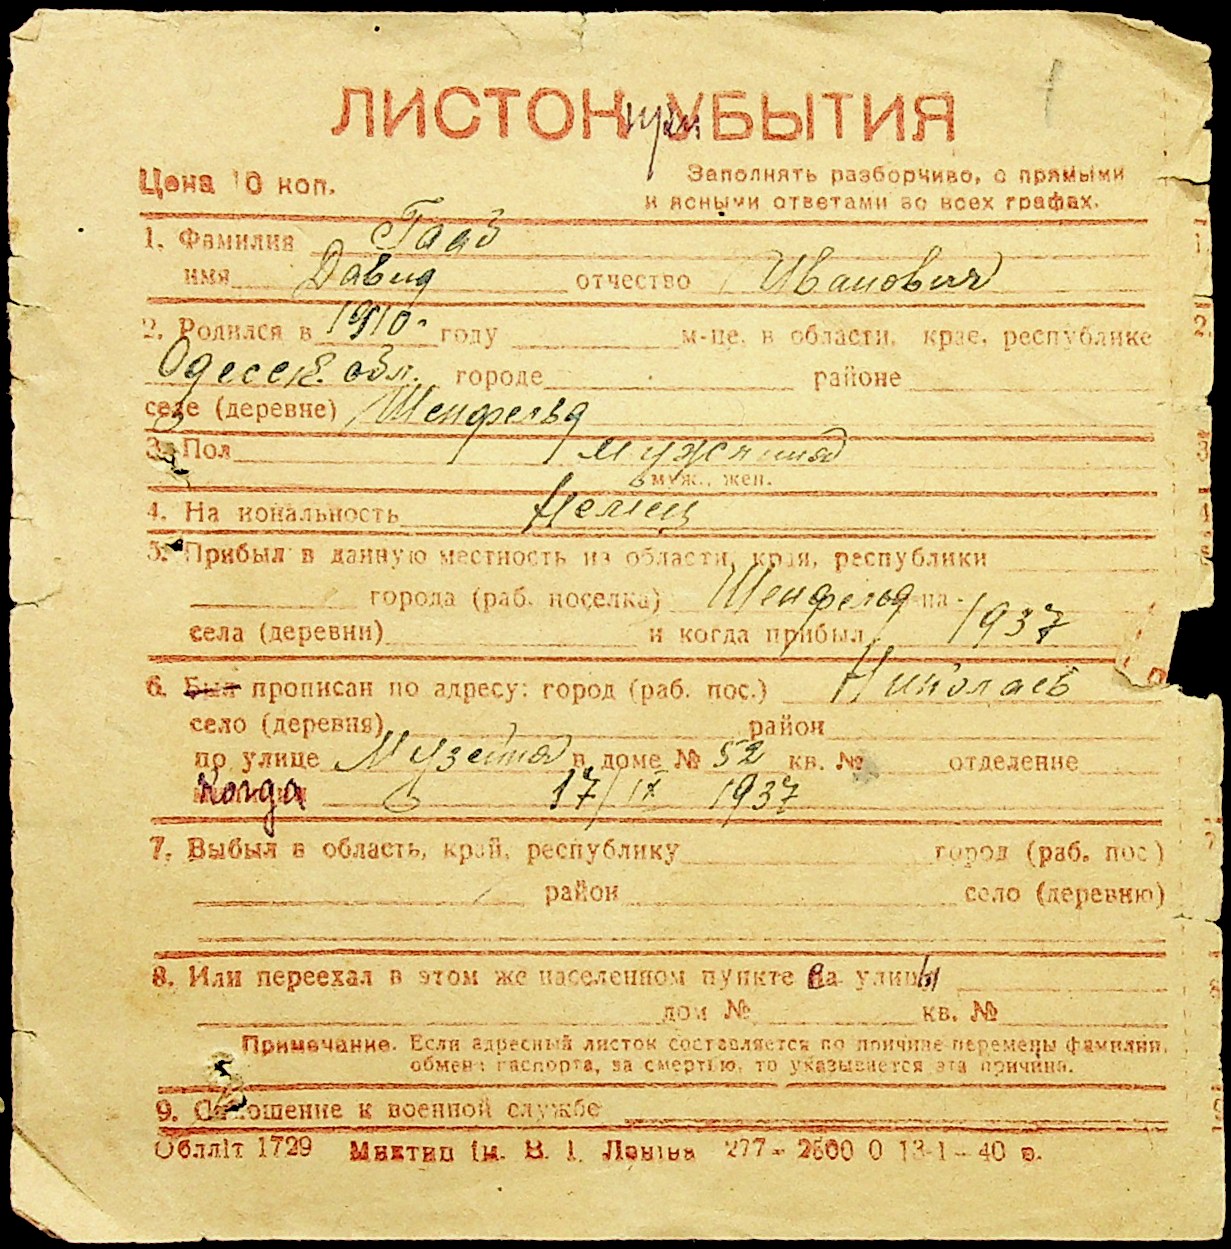 ЛИСТОК УБЫТИЯ
Цена 10 коп.
Заполнять разборчиво, с прямыми
и ясными ответами во всех графах.
1. Фамилия
имя Давид отчество Иванович
2. Родился в 1910. году м-це, в области, крае, республике
Одесск. обл. городе районе
селе (деревне) Шенфельд
3. Пол мужчина
муж., жен.
4. Национальность Немец
5. Прибыл в данную местность из области, края, республики
города (раб. поселка) Шенфельд
села (деревни) и когда прибыл 1937
6. Был прописан по адресу: город (раб. пос.) Николаев
село (деревня) район
по улице Музейная в доме № 52 кв. № отделение
Когда 17/IX 1937
7. Выбыл в область, край, республику город (раб. пос)
район село (деревню)
8. Или переехал в этом же населенном пункте на улицы
дом № кв. №
Примечание. Если адресный листок составляется по причине перемены фамилии,
обмена паспорта, за смертью, то указывается эта причина.
9. Отношение к военной службе
Облліт 1729 Миктип ім. В. І. Леніна 277 - 2500 0 13-1-40 р.